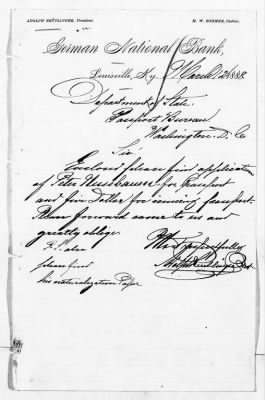 ADOLPH REUTLINGER, President. H. W. BOHMER, Cashier.
German National Bank,
Louisville, Ky. March 1888
Department of State
Passport Bureau
Washington. D. C
Sir
Enclosed please find application
of Peter Nussbaum for Passport
and five Dollar for issuing passport.
Please forward same to us and
greatly oblige
Most respectfully
Adolph Reutlinger Prest
P. S. also
please find
his naturalization Paper